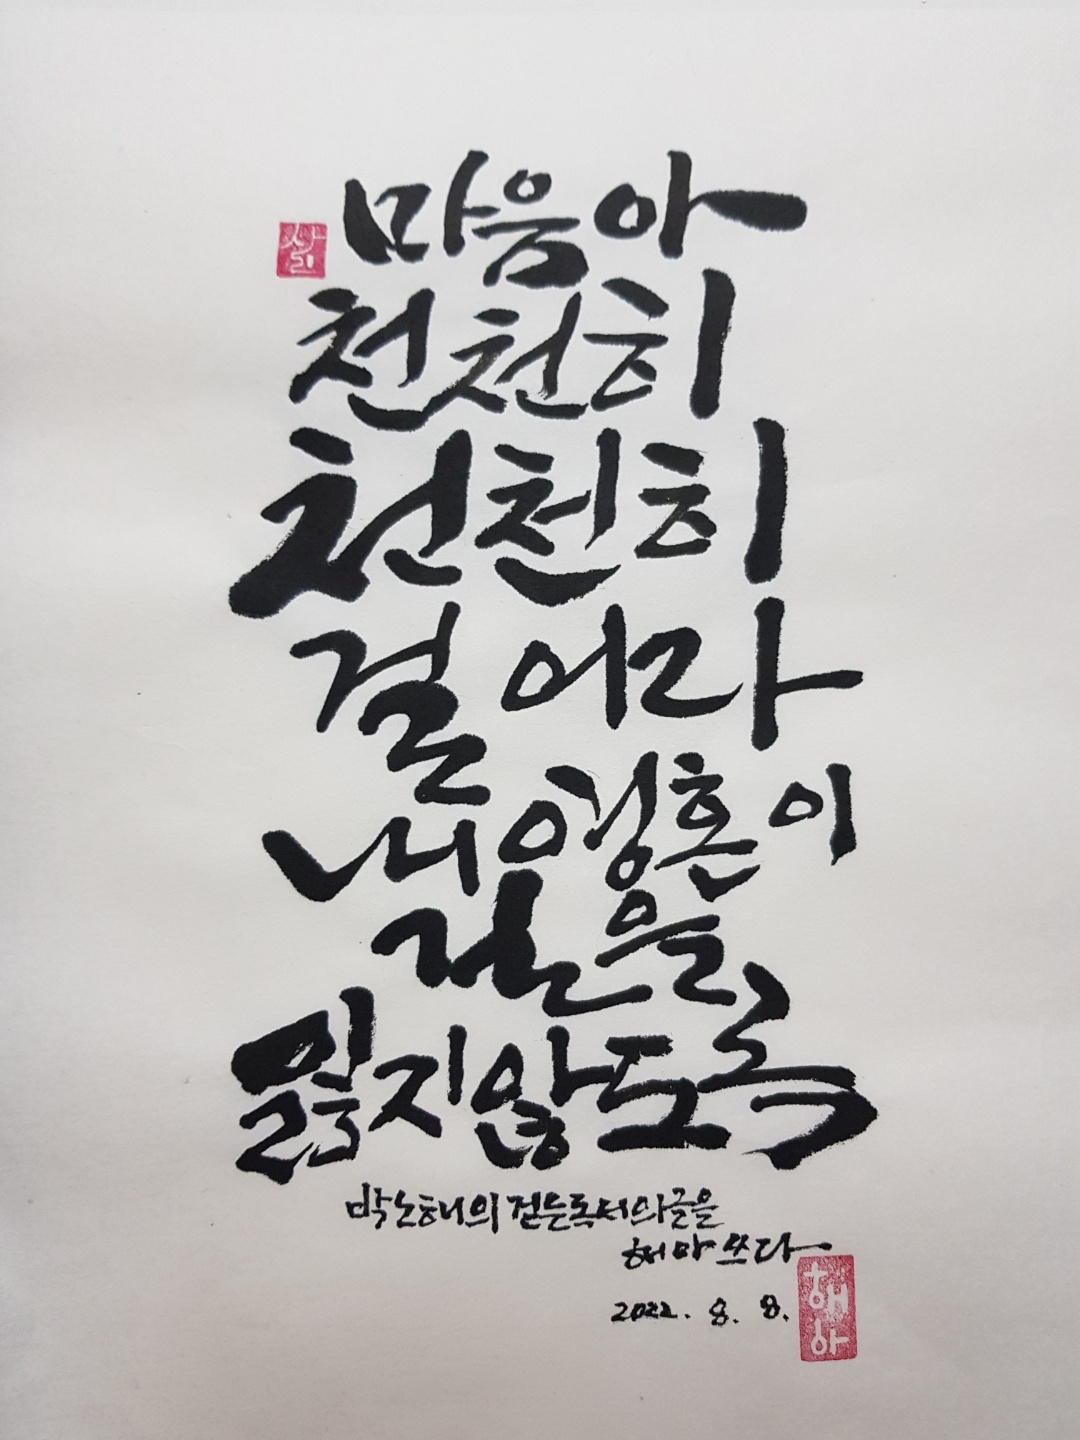 마음아
천천히
천천히
걸어라
내 영혼이
길을
잃지 않도록
박노해의 걷는 독서의 글을
해마 쓰다
2022. 8. 8.
해마